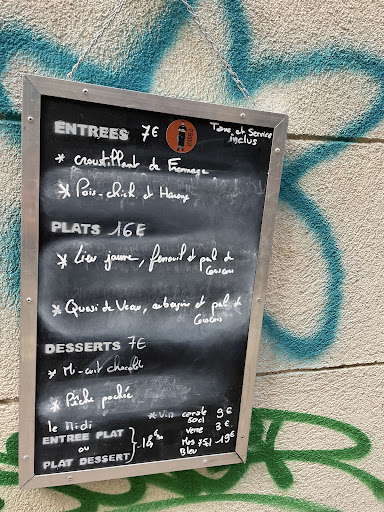 ENTREES 7€
Taxe et Service
inclus
* croustillant de Fromage
* Pois-chich et Hareng
PLATS 16€
* Lieu jaune, fenouil et
Couscous
* Quasi de Veau, aubergine et
Couscous
DESSERTS 7€
* Mi-cuit chocolat
* Pêche pochée
le Midi
ENTREE PLAT
ou
PLAT DESSERT
* Vin carafe 9€
50cl
verre 3€
75cl 19€
Bleu